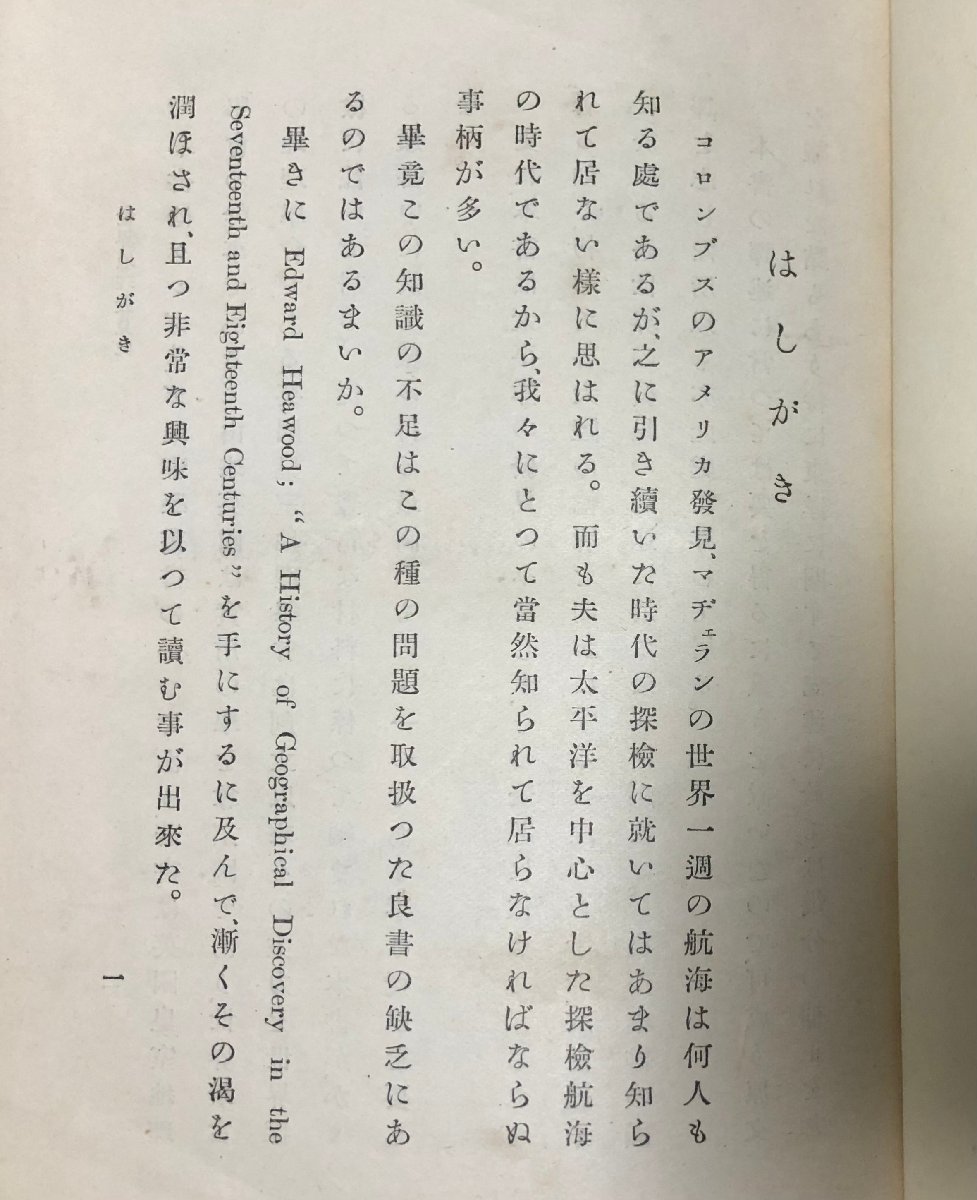 はしがき
コロンブスのアメリカ發見、マヂェランの世界一週の航海は何人も
知る處であるが、之に引き續いた時代の探檢に就いてはあまり知ら
れて居ない様に思はれる。而も夫は太平洋を中心とした探檢航海
の時代であるから、我々にとつて當然知られて居らなければならぬ
事柄が多い。
畢竟この知識の不足はこの種の問題を取扱つた良書の缺乏にあ
るのではあるまいか。
畢きに Edward Heawood; “A History of Geographical Discovery in the
Seventeenth and Eighteenth Centuries” を手にするに及んで、漸くその渴を
潤ほされ、且つ非常な興味を以つて讀む事が出來た。
はしがき
一